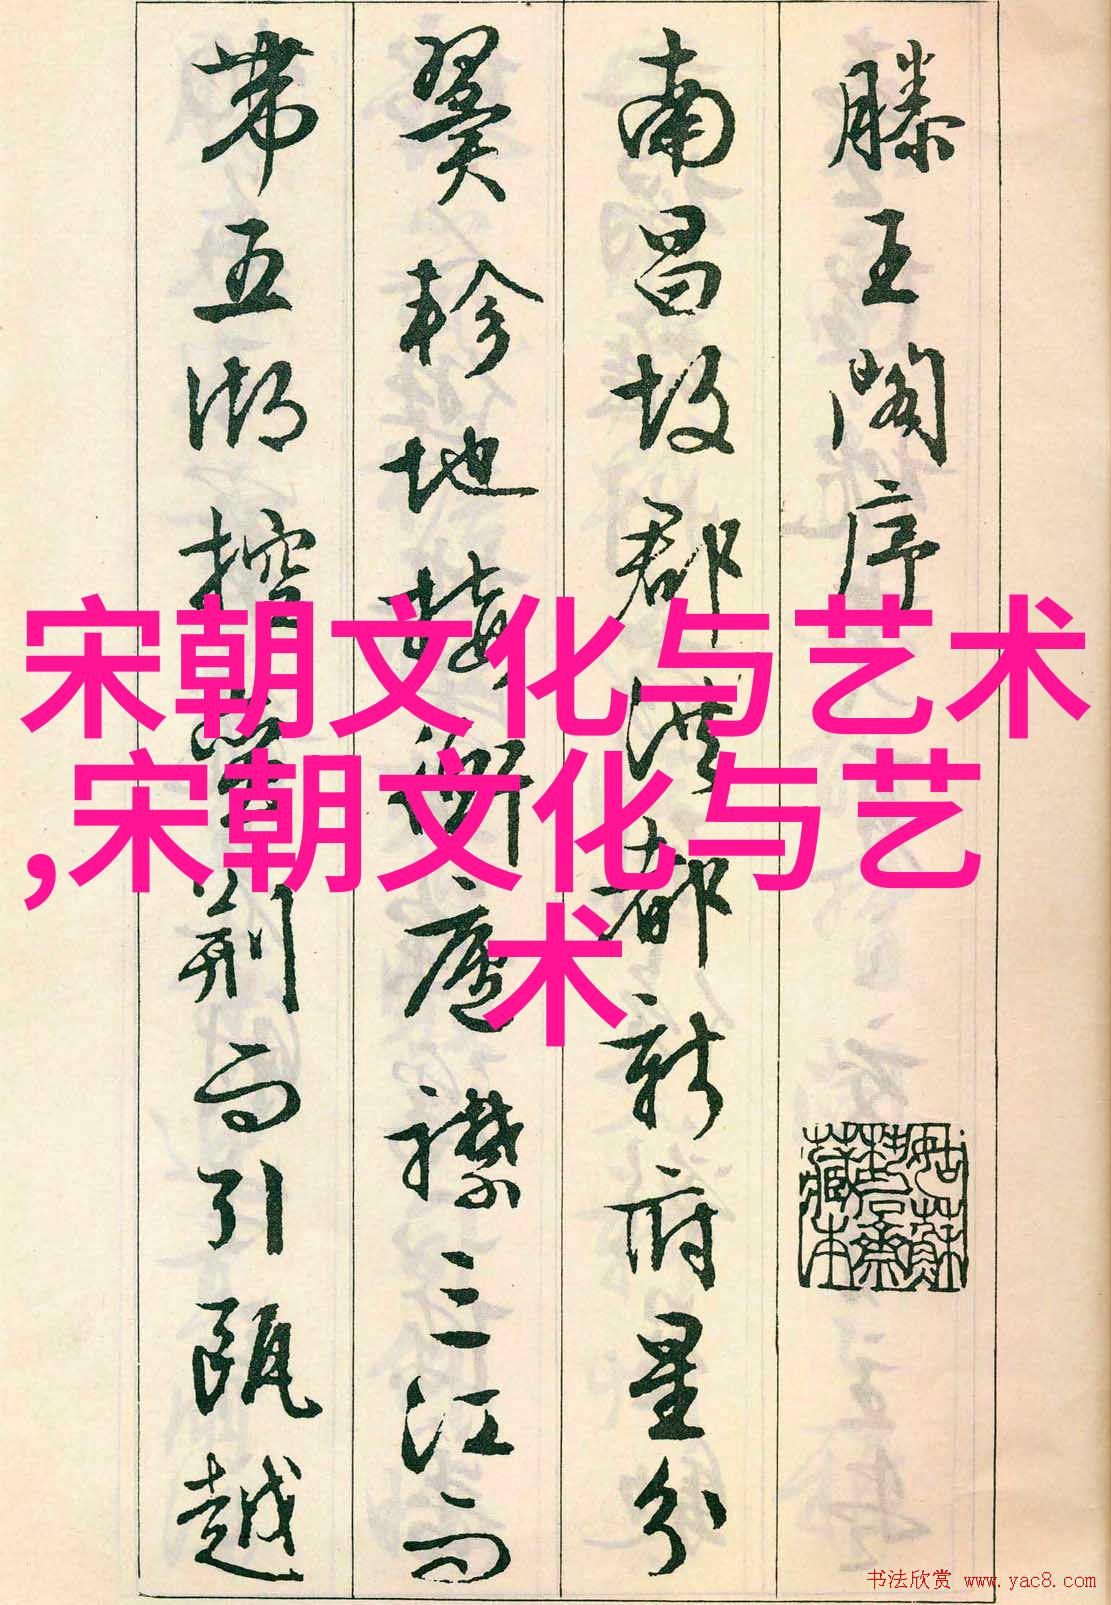 滕王閣序
南昌故郡洪都新府星分
翼軫地接衡廬襟三江而
帶五湖控蠻荊而引甌越
宋朝文化与艺术
,宋朝文化与艺
术
书法欣赏 www.yac8.com